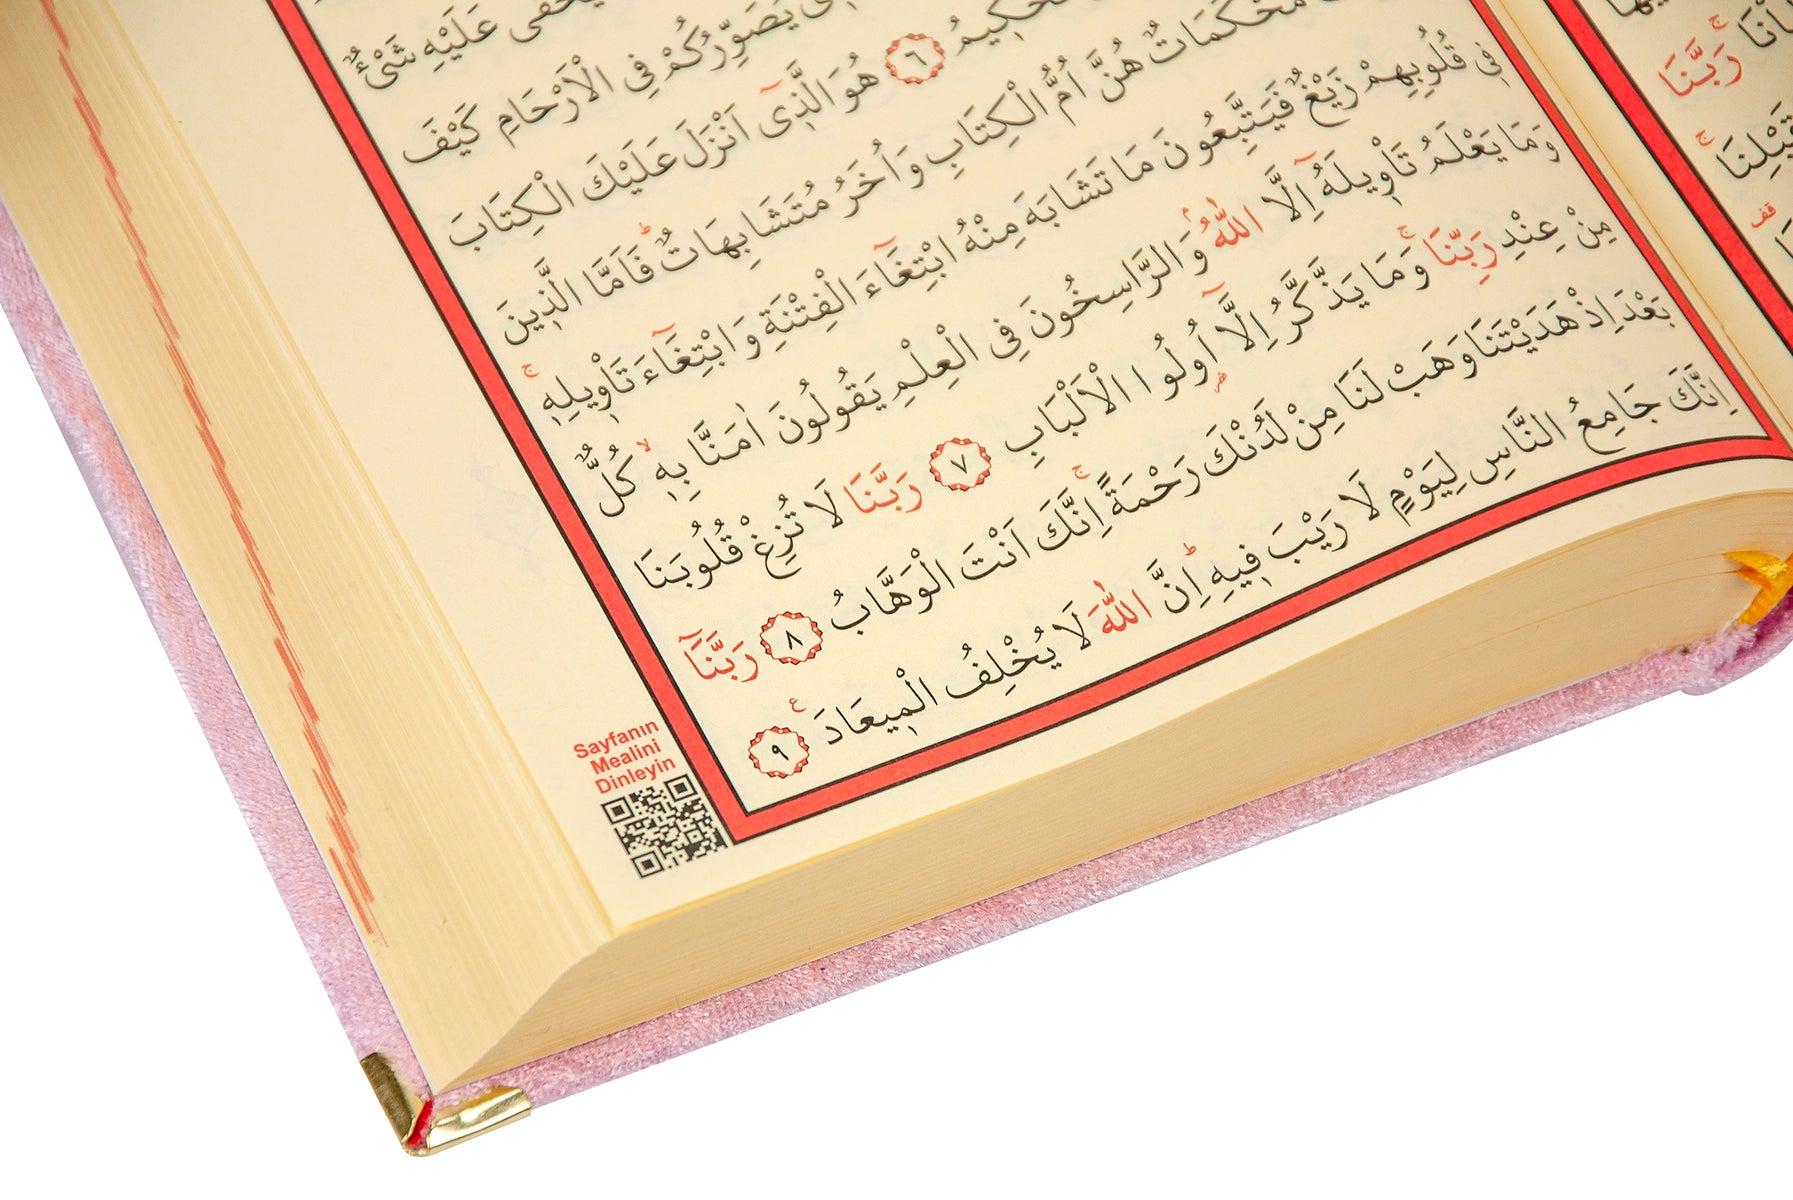 يَخْفٰى عَلَيْهِ شَيْءٌ
يُصَوِّرُكُمْ فِي الْاَرْحَامِ كَيْفَ
الْحَكِيمُ ﴿٦﴾ هُوَ الَّذِٓي اَنْزَلَ عَلَيْكَ الْكِتَابَ
مُحْكَمَاتٌ هُنَّ اُمُّ الْكِتَابِ وَاُخَرُ مُتَشَابِهَاتٌۜ فَاَمَّا الَّذِينَ
فِي قُلُوبِهِمْ زَيْغٌ فَيَتَّبِعُونَ مَا تَشَابَهَ مِنْهُ ابْتِغَٓاءَ الْفِتْنَةِ وَابْتِغَٓاءَ تَأْوِيلِهِۚ
وَمَا يَعْلَمُ تَأْوِيلَهُٓ اِلَّا اللّٰهُۢ وَالرَّاسِخُونَ فِي الْعِلْمِ يَقُولُونَ اٰمَنَّا بِهِۙ كُلٌّ
مِنْ عِنْدِ رَبِّنَاۚ وَمَا يَذَّكَّرُ اِلَّٓا اُو۬لُوا الْاَلْبَابِ ﴿٧﴾ رَبَّنَا لَا تُزِغْ قُلُوبَنَا
بَعْدَ اِذْ هَدَيْتَنَا وَهَبْ لَنَا مِنْ لَدُنْكَ رَحْمَةًۚ اِنَّكَ اَنْتَ الْوَهَّابُ ﴿٨﴾ رَبَّنَٓا
اِنَّكَ جَامِعُ النَّاسِ لِيَوْمٍ لَا رَيْبَ فِيهِۜ اِنَّ اللّٰهَ لَا يُخْلِفُ الْمِيعَادَ۟ ﴿٩﴾
Sayfanın
Mealini
Dinleyin
رَبَّنَاۚ
قَبْلِنَاۚ